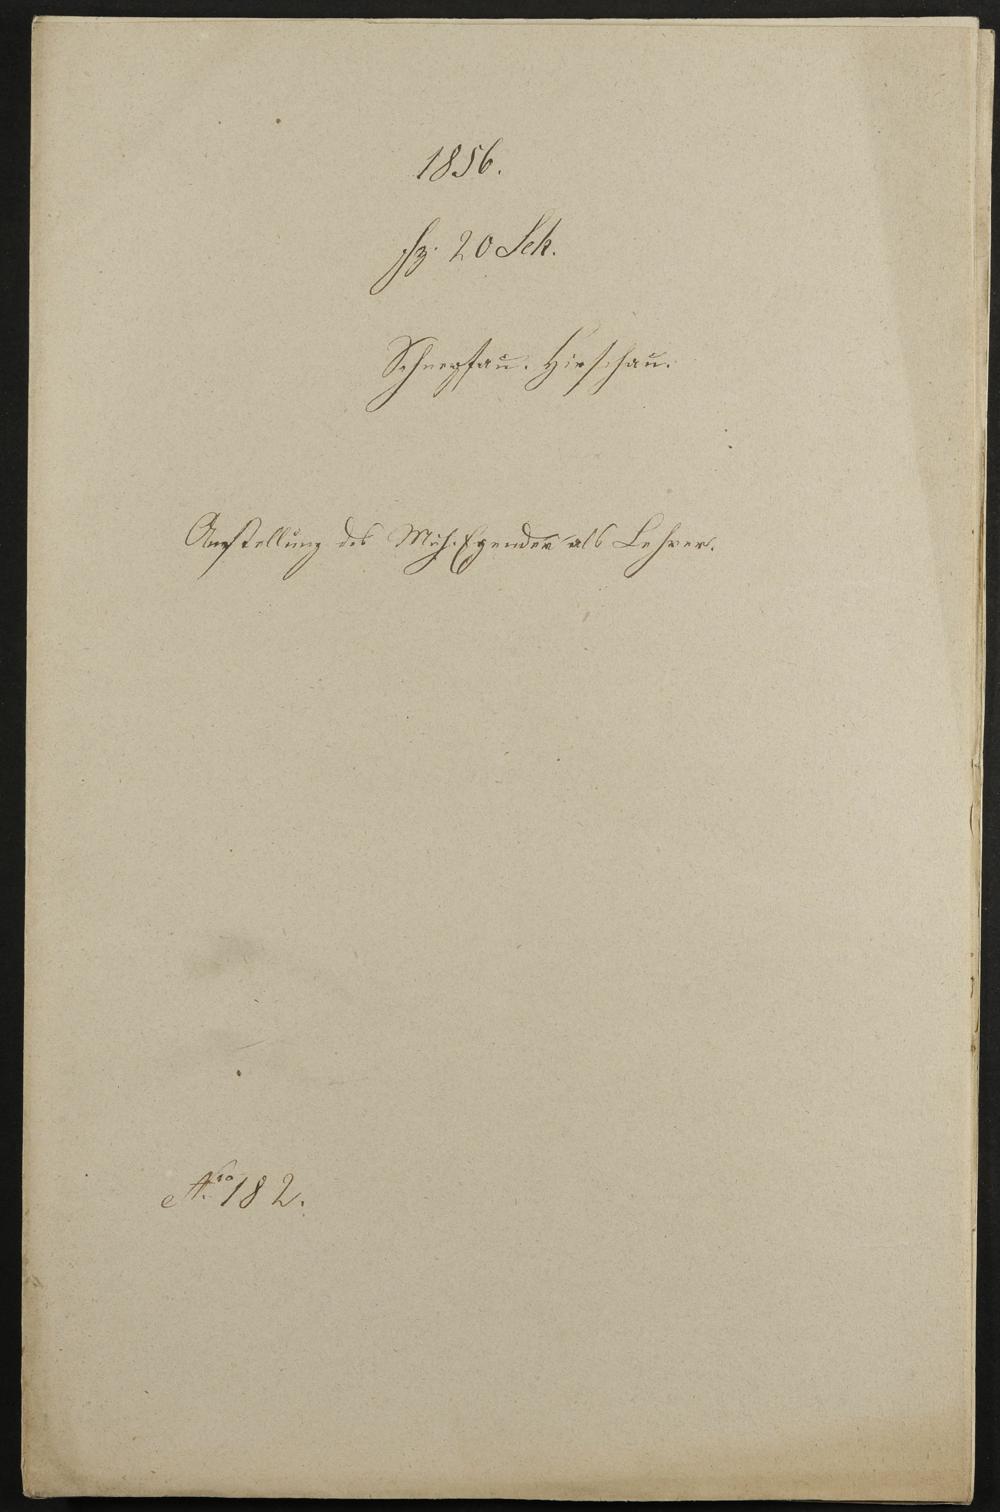 1856.
Fz. 20 Sch.
Schnepfau. Hirschau.
Anstellung des Mich. Egender als Lehrer.
Nro 182.